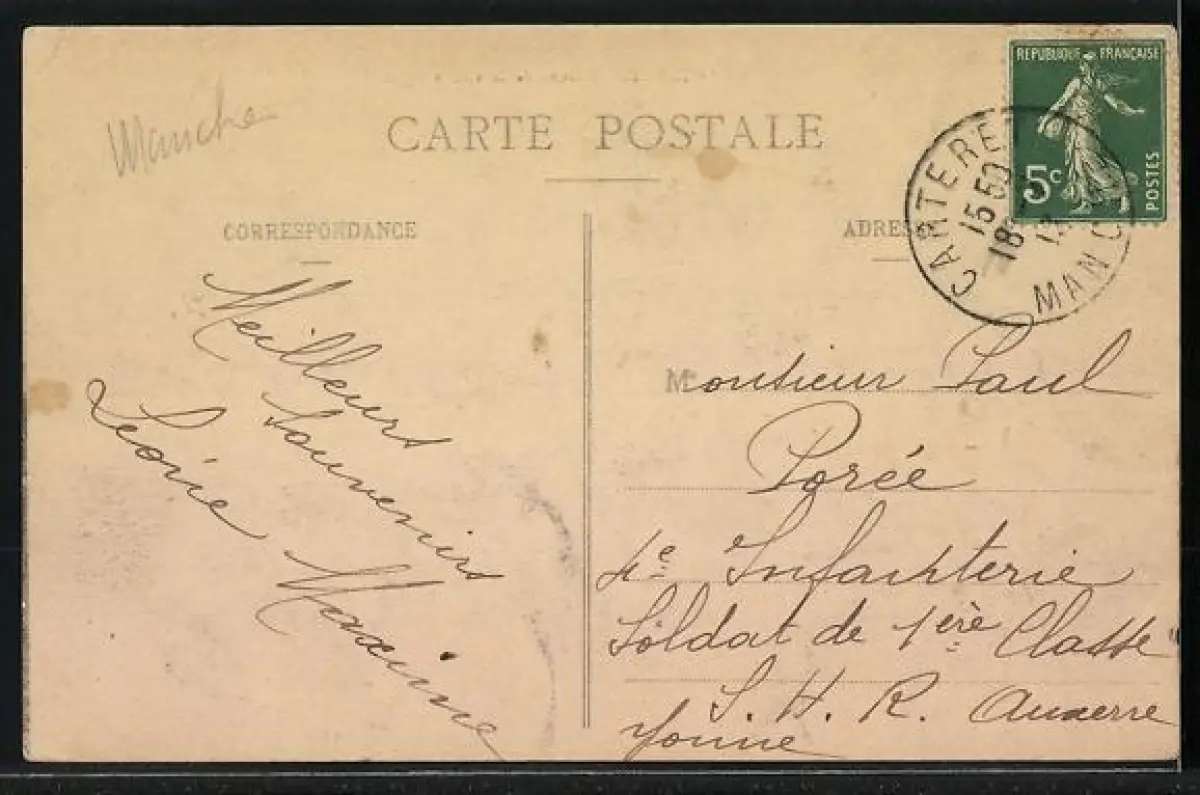 Manche
CARTE POSTALE
REPUBLIQUE FRANÇAISE
5c
POSTES
CARTERET
15 50
18
MANCHE
CORRESPONDANCE
ADRESSE
Meilleurs
Souvenirs
Léonie Maxime
Monsieur Paul
Porée
4e Infanterie
Soldat de 1ère Classe
S. H. R. Auxerre
Yonne